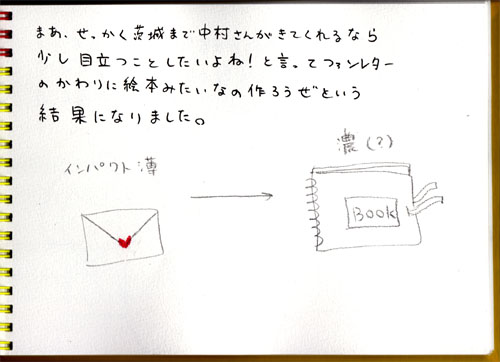 まあ、せっかく茨城まで中村さんがきてくれるなら
少し目立つことしたいよね！と言ってファンレター
のかわりに絵本みたいなの作ろうぜという
結果になりました。
濃(?)
インパクト薄
BOOK